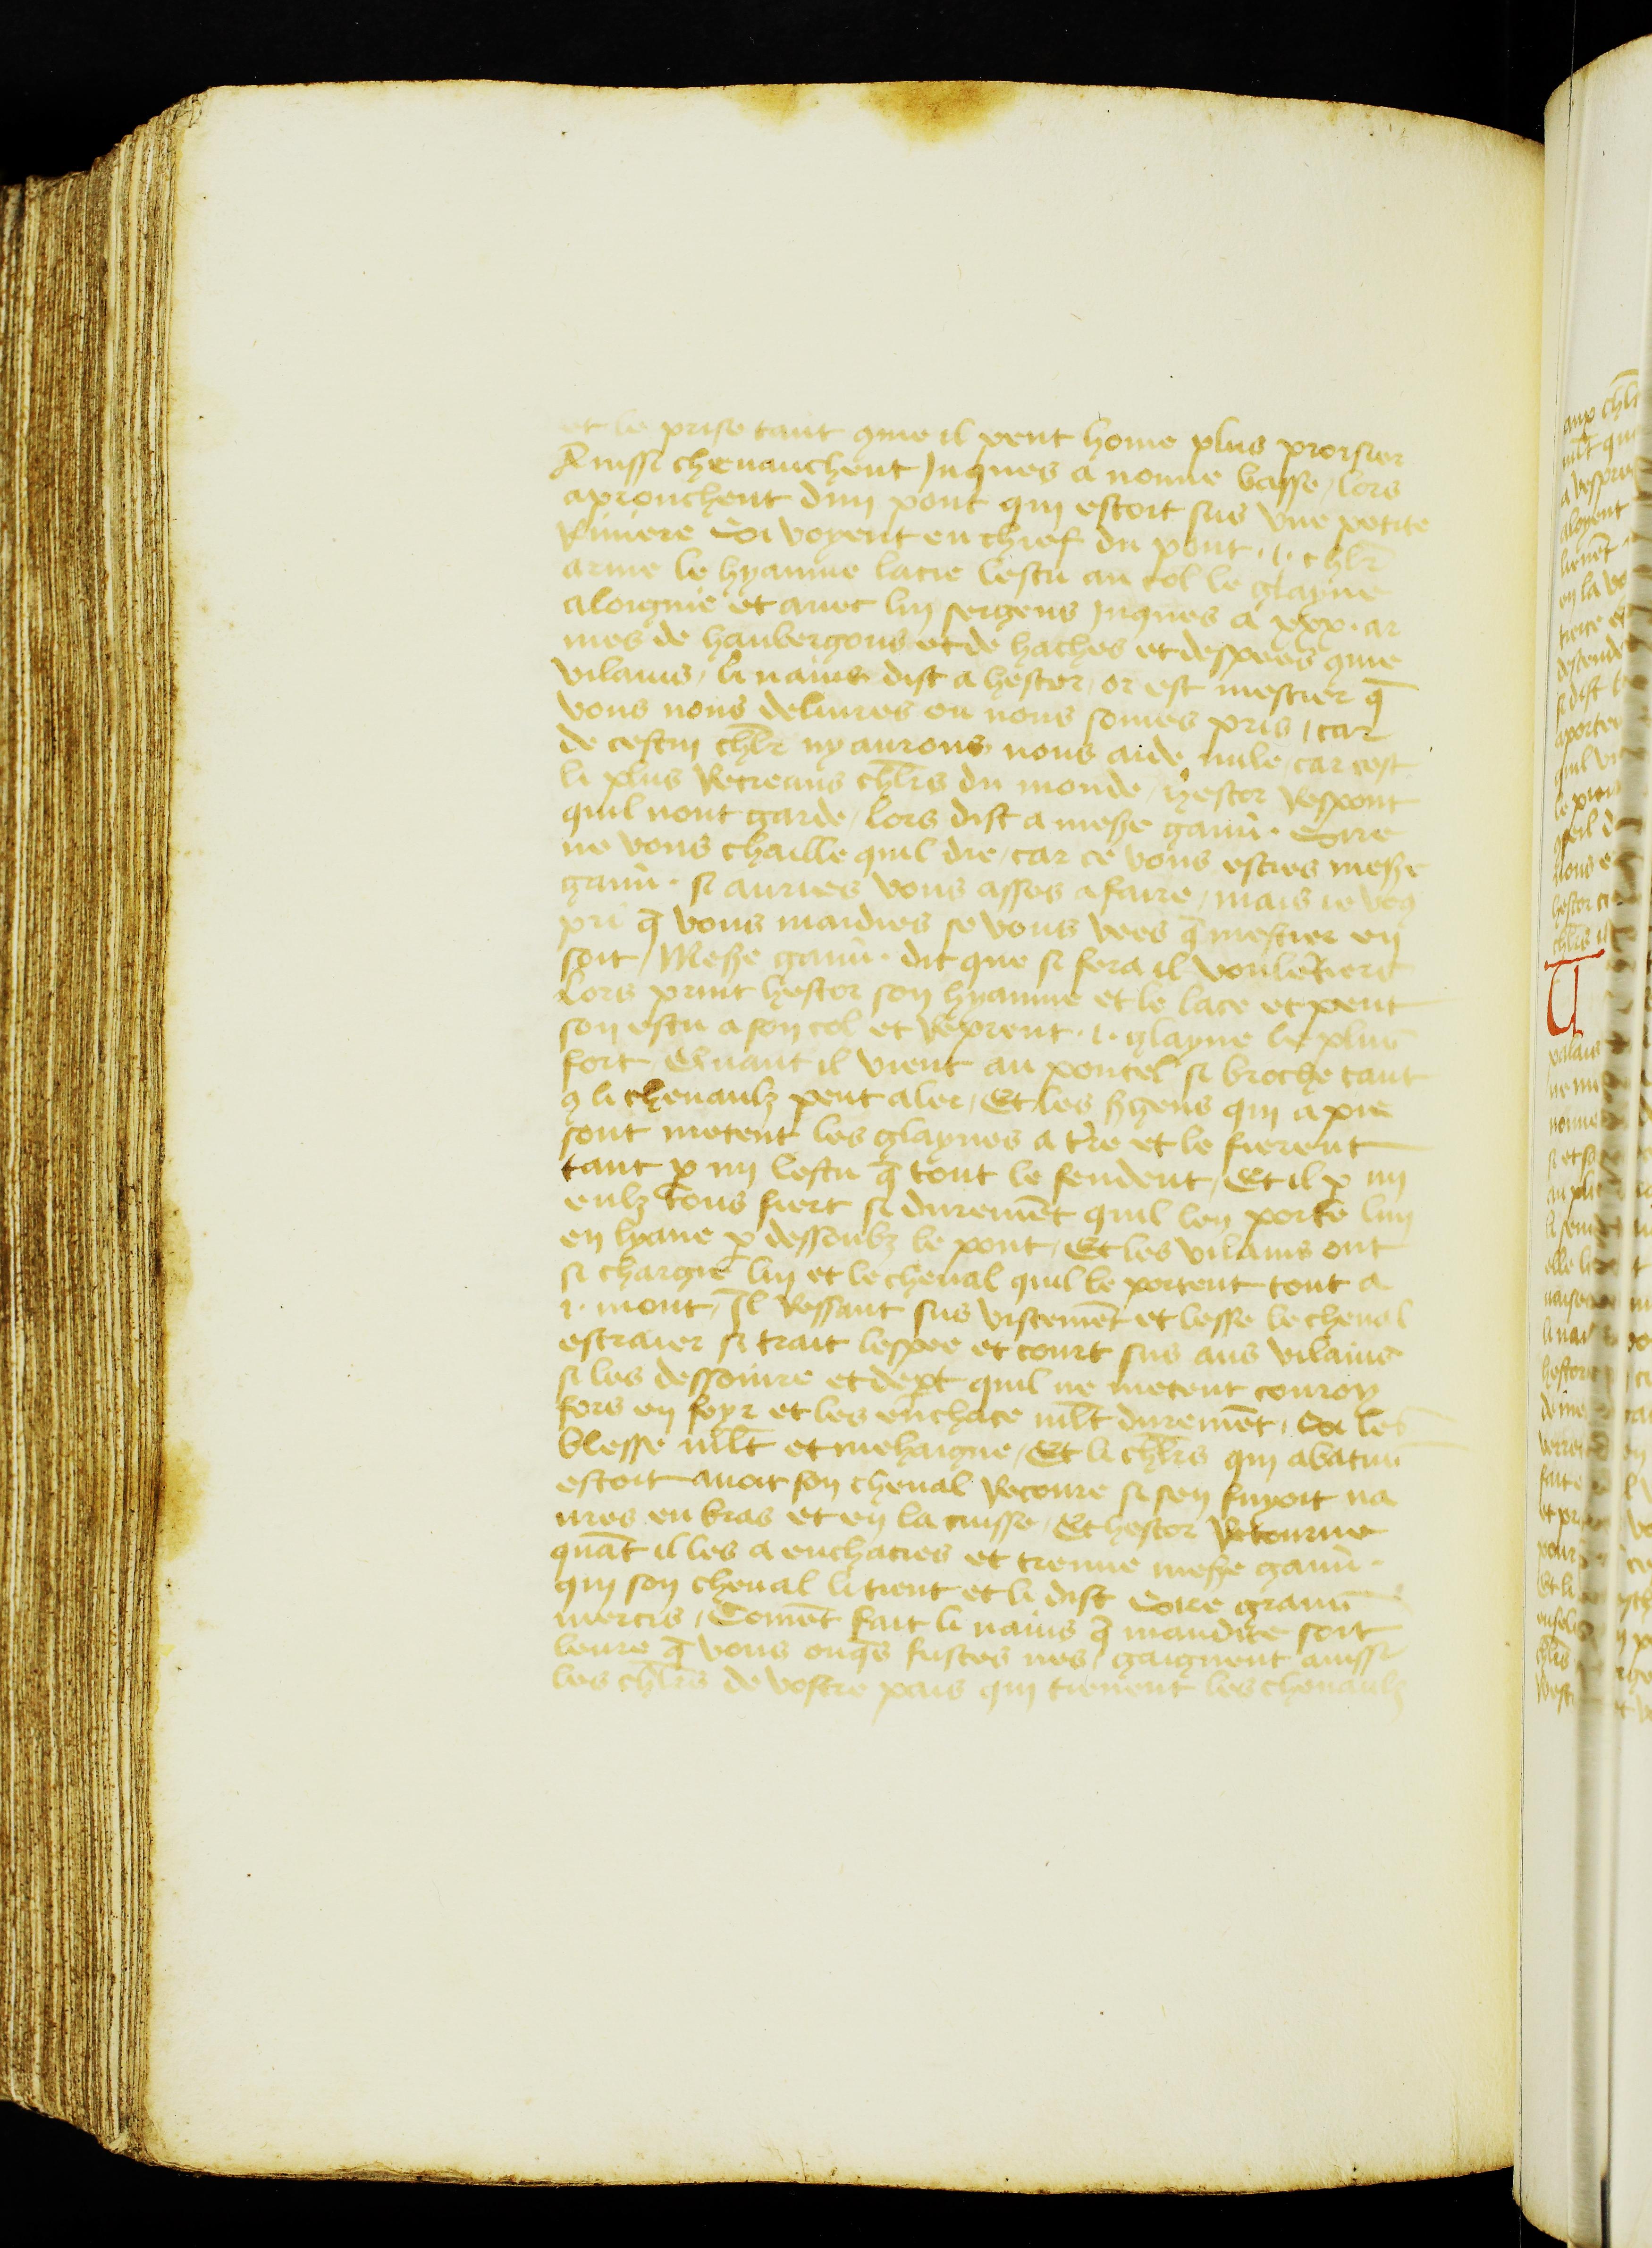 et le prise tant que il peut home plus proisier
Auissi cheuauchent Juques a nonne basse / lors
aprouchent dun pont qui estoit sus vne petite
Riuiere Si voyent en chief du pont .i. chlr̄
arme le hyaume lacie lescu au col le glayue
aloignie et auec luy sergens Juques a xxx. ar
mes de haubergons et de haches et despees que
vilains / li nains dist a hestor / or est mestier q̄
vous nous deliures ou nous somes pris / car
de cestuy chlr̄ ny aurons nous aide nule / car cest
li plus Recreans chlr̄s du monde / hestor Respont
quil nont garde / Lors dist a mesẜe gauū. Sire
ne vous chaille quil die / car ce vous esties mesẜe
gauū. si auries vous asses a faire / mais ie vo9
pri q̄ vous maidies se vous vees q̄ mestier en
soit / Mesẜe gauū. dit que si fera il voulētiers
Lors print hestor son hyaume et le lace et pent
son escu a son col et Reprent .i. glayue le plus
fort / Quant il vient au poncel si broche tant
q̄ li cheuaulz peut aler / Et les ẜgens qui a pie
sont metent les glayues a tr̄e et le fierent
tant p̱ my lescu q̄ tout le fendent / Et il p̱ my
eulz tous fiert si duremēt quil len porte lun
en lyaue p̱ dessoubz le pont / Et les vilains ont
si chargie luy et le cheual quil le portent tout a
.i. mont / Il Ressaut sus vistemēt et lesse le cheual
estraier si trait lespee et court sus aus vilains
si les dessoiure et dep̱t quil ne metent conroy
fors en foyr et les enchace ml̄t duremēt / Si les
blesse ml̄t et mehaigne / Et li chlr̄s qui abatuu
estoit auoit son cheual Recoure si sen fuyoit na
ures eu bras et en la cuisse / Et hestor Retourne
quāt il les a enchacies et treuue mesẜe gauū.
qui son cheual li tient et li dist Sire granū
mercis / Comēt fait li nains q̄ maudite soit
leure q̄ vous onq̄s fustes nes / gaignent auissi
les chlr̄s de vostre pais qui tienent les cheuaulz